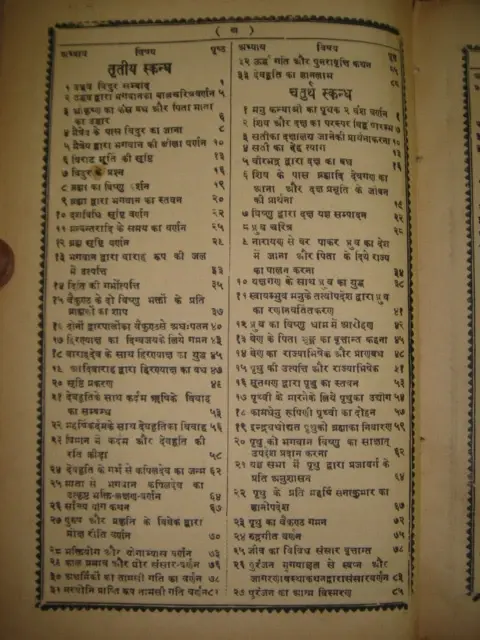 अध्याय विषय पृष्ठ
तृतीय स्कन्ध
१ उद्धव विदुर सम्वाद १
२ उद्धव द्वारा भगवानका बालचरित्रवर्णन ५
३ श्रीकृष्ण का कंस बध और पिता माता
का उद्धार ६
४ मैत्रेय के पास विदुर का जाना ८
५ मैत्रेय द्वारा भगवान की लीला वर्णन १०
६ विराट मूर्ति की सृष्टि १३
७ विदुर के प्रश्न १६
८ ब्रह्मा का विष्णु दर्शन १९
९ ब्रह्मा द्वारा भगवान का स्तवन २०
१० दशविधि सृष्टि वर्णन २२
११ मन्वन्तरादि के समय का वर्णन २५
१२ ब्रह्म सृष्टि वर्णन
१३ भगवान द्वारा वाराह रूप की जल
में उत्पत्ति ३३
१४ दिति की गर्भोत्पत्ति ३५
१५ बैंकुण्ठ के दो विष्णु भक्तों के प्रति
ब्राह्मणों का शाप ३७
१६ दोनों द्वारपालोंका बैंकुण्ठसे अधःपतन ४०
१७ हिरण्याक्ष का दिग्विजयके लिये गमन ४३
१८ बाराहदेव के साथ हिरण्याक्ष का युद्ध ४५
१९ आदिवाराह द्वारा हिरण्याक्ष का बध ४७
२० सृष्टि प्रकरण ४९
२१ देवहूति के साथ कर्दम ऋषिके विवाह
का सम्बन्ध ५३
२२ महर्षिकर्दमके साथ देवहूतिका विवाह ५६
२३ विमान में कर्दम और देवहूति की
रति क्रीड़ा ५८
२४ देवहूति के गर्भ से कपिलदेव का जन्म ६२
२५ माता से भगवान कपिलदेव का
उत्कृष्ट भक्ति-लक्षण-वर्णन ६४
२६ सांख्य योग कथन ६७
२७ पुरुष और प्रकृति के विवेक द्वारा
मोक्ष रीति वर्णन ७०
२८ भक्तियोग और योगाभ्यास वर्णन ७३
२९ काल प्रभाव और घोर संसार-वर्णन ७६
३० अधर्मियों का तामसी गति का वर्णन ७८
३१ नरयोनि प्राप्ति रूप तामसी गति वर्णन ८१
अध्याय विषय पृष्ठ
३२ ऊर्ध्व गति और पुनरावृत्ति कथन ८५
३३ देवहूति का ज्ञानलाभ ८८
चतुर्थ स्कन्ध
१ मनु कन्याओं का पृथक २ वंश वर्णन १
२ शिव और दक्ष का परस्पर विद्वेषारम्भ ७
३ सतीका दक्षालय जानेकी प्रार्थनाकरना १०
४ सती का देह त्याग १३
५ वीरभद्र द्वारा दक्ष का बध १६
६ शिव के पास ब्रह्मादि देवगण का
आना और दक्ष प्रभृति के जीवन
की प्रार्थना १८
७ विष्णु द्वारा दक्ष यज्ञ सम्पादन २२
८ ध्रुव चरित्र २८
९ नारायण से वर पाकर ध्रुव का देश
में आना और पिता के दिये राज्य
का पालन करना ३४
१० यक्षगण के साथ ध्रुव का युद्ध ३८
११ स्वायम्भुव मनुके तत्वोपदेश द्वारा ध्रुव
का रणनिर्वातितकरण ४१
१२ ध्रुव का विष्णु धाम में आरोहण ४१
१३ वेण के पिता अङ्ग का वृत्तान्त कहना ४५
१४ वेण का राज्याभिषेक और प्राणबध ४८
१५ पृथु की उत्पत्ति और राज्याभिषेक ५१
१६ सूतगण द्वारा पृथु का स्तवन ५३
१७ पृथ्वी के मारनेके लिये पृथुका उद्योग ५४
१८ कामधेनु रूपिणी पृथ्वी का दोहन ५७
१९ इन्द्रबधोद्यत पृथुको ब्रह्माका निवारण ५९
२० पृथु को भगवान विष्णु का साक्षात्
उपदेश प्रदान करना ६२
२१ यज्ञ सभा में पृथु द्वारा प्रजावर्ग के
प्रति अनुशासन ६४
२२ पृथु के प्रति महर्षि सनत्कुमार का
ज्ञानोपदेश ६७
२३ पृथु का बैंकुण्ठ गमन ७२
२४ रुद्रगीत वर्णन ७५
२५ जीव का विविध संसार वृत्तान्त ७८
२६ पुरंजन मृगयाछल से स्वप्न और
जागरणावस्थाकथनद्वारासंसारवर्णन ८३
२७ पुरंजन का आत्म विस्मरण ८५